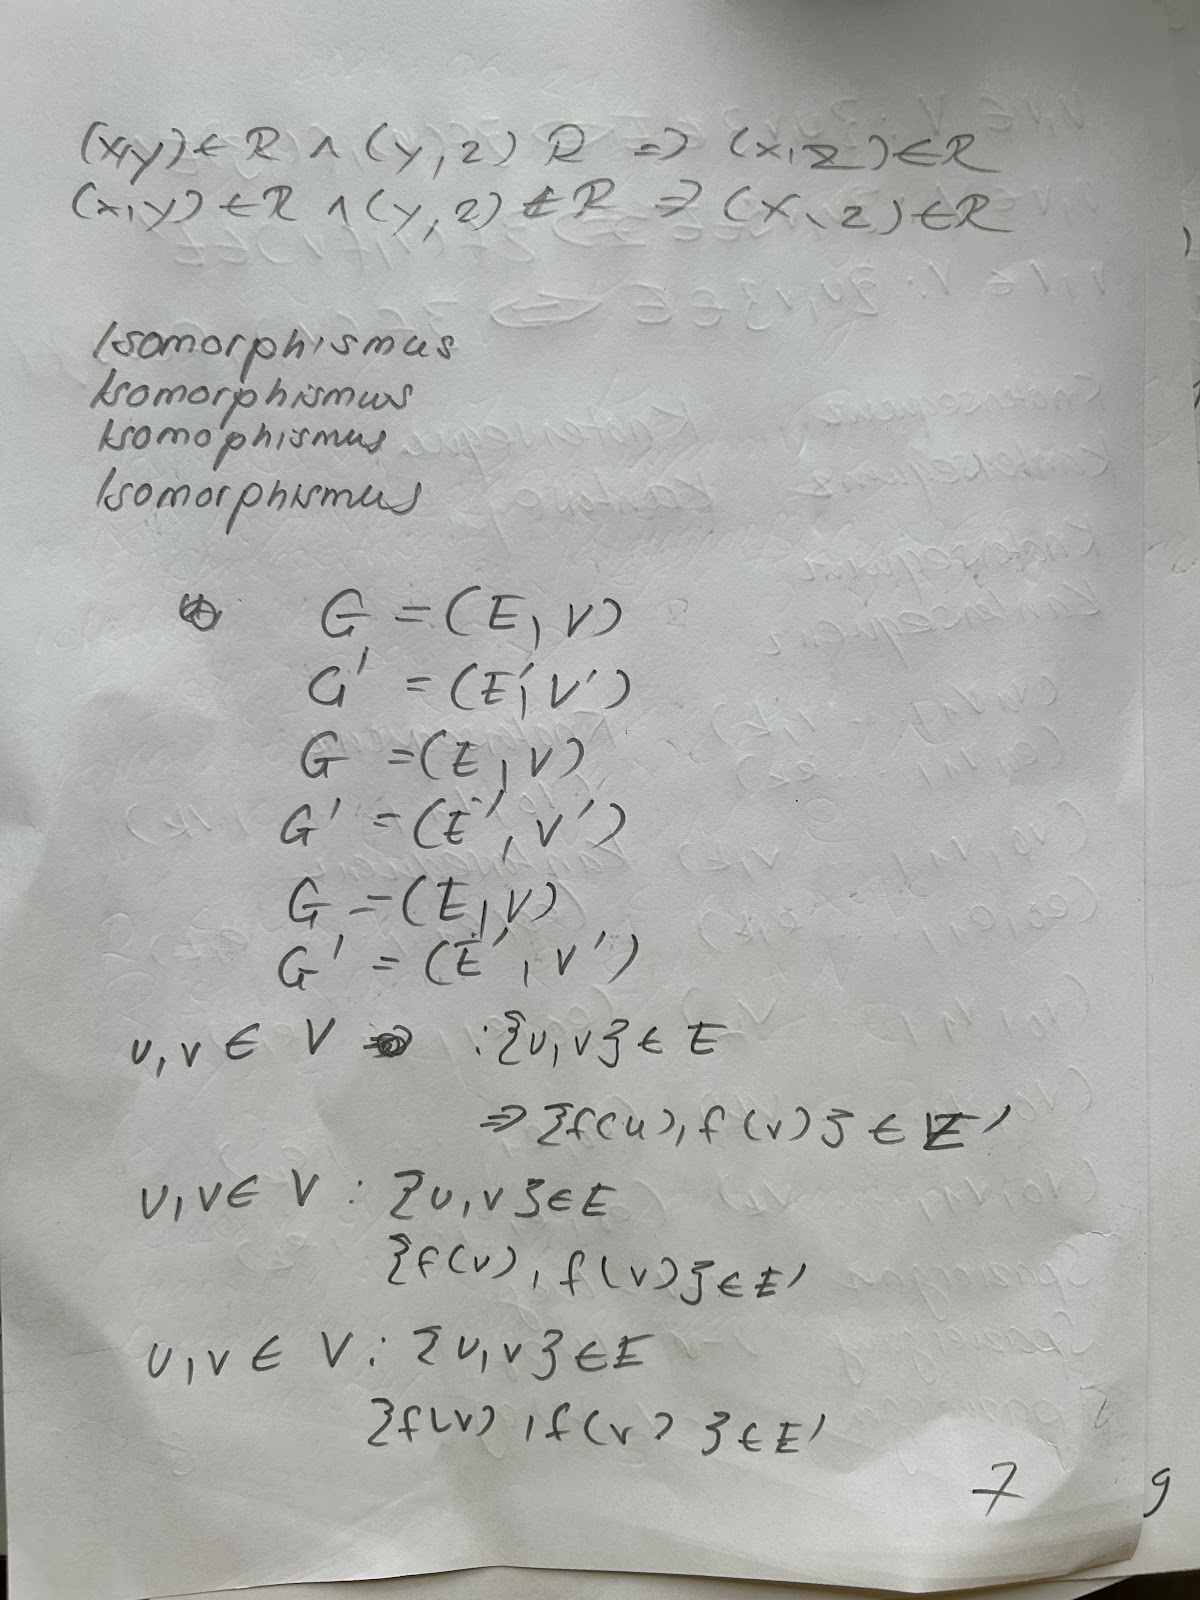 (x,y) ∈ R ∧ (y,z) R => (x,z) ∈ R
(x,y) ∈ R ∧ (y,z) ∈ R => (x,z) ∈ R
Isomorphismus
Isomorphismus
Isomophismus
Isomorphismus
G = (E, V)
G' = (E', V')
G = (E, V)
G' = (E', V')
G = (E, V)
G' = (E', V')
u, v ∈ V : {u, v} ∈ E
=> {f(u), f(v)} ∈ E'
u, v ∈ V : {u, v} ∈ E
{f(v), f(v)} ∈ E'
u, v ∈ V : {u, v} ∈ E
{f(v), f(v)} ∈ E'
7 9